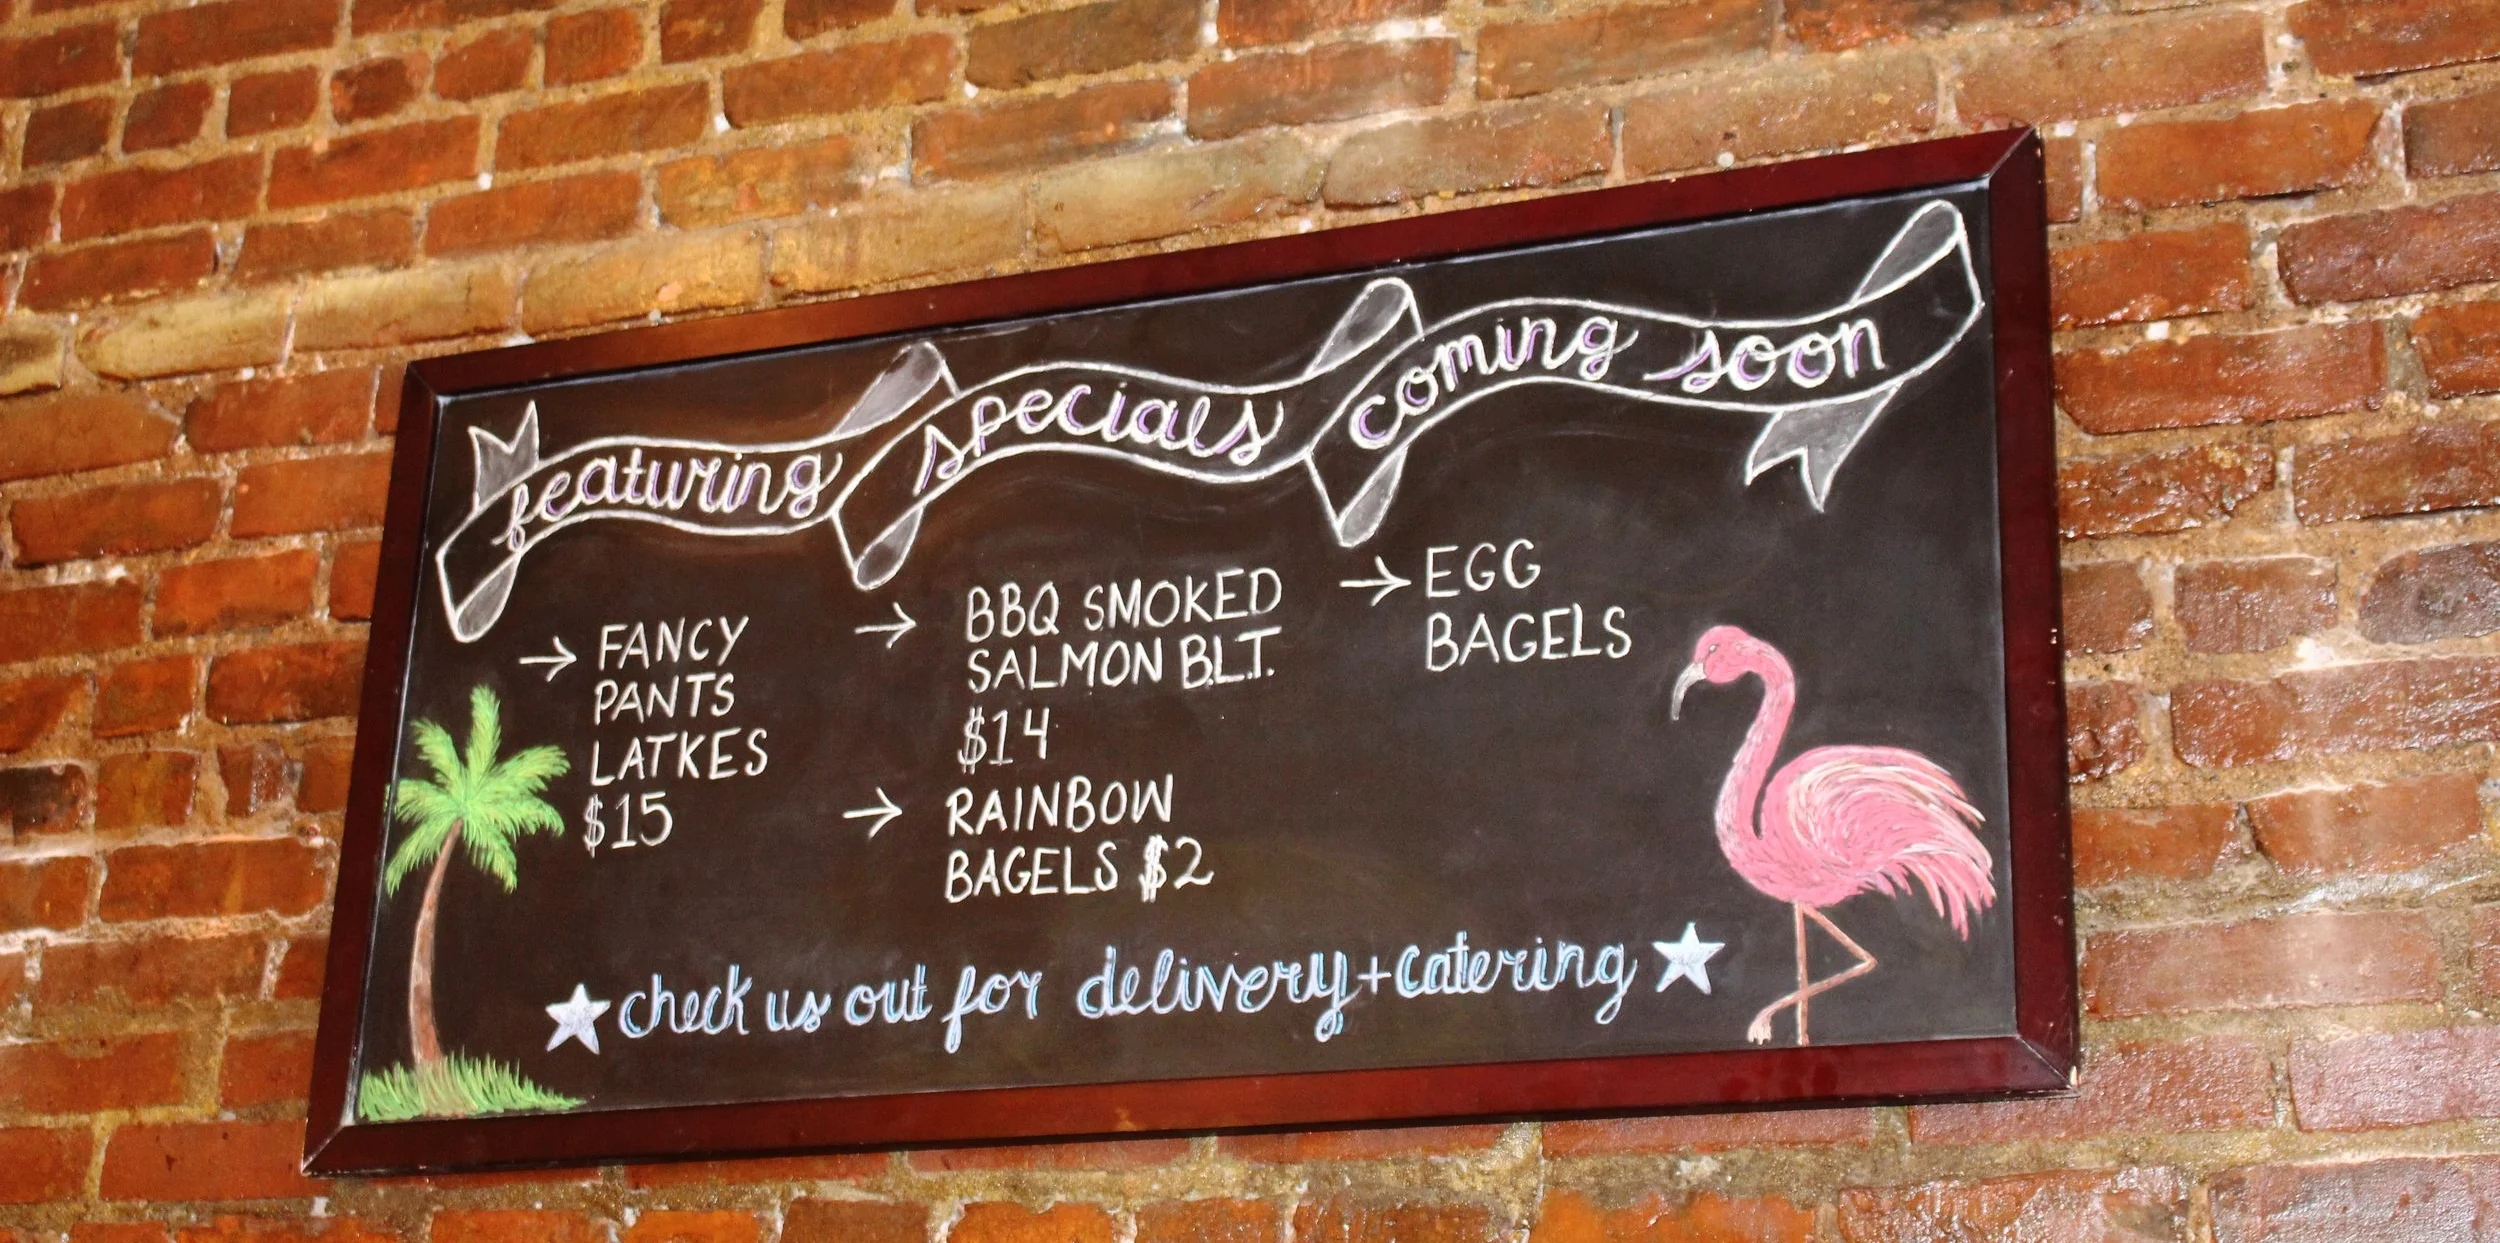 featuring
→ FANCY
PANTS
LATKES
$15
specials
→ BBQ SMOKED
SALMON B.L.T.
$14
→ RAINBOW
BAGELS $2
coming soon
→ EGG
BAGELS
check us out for delivery + catering